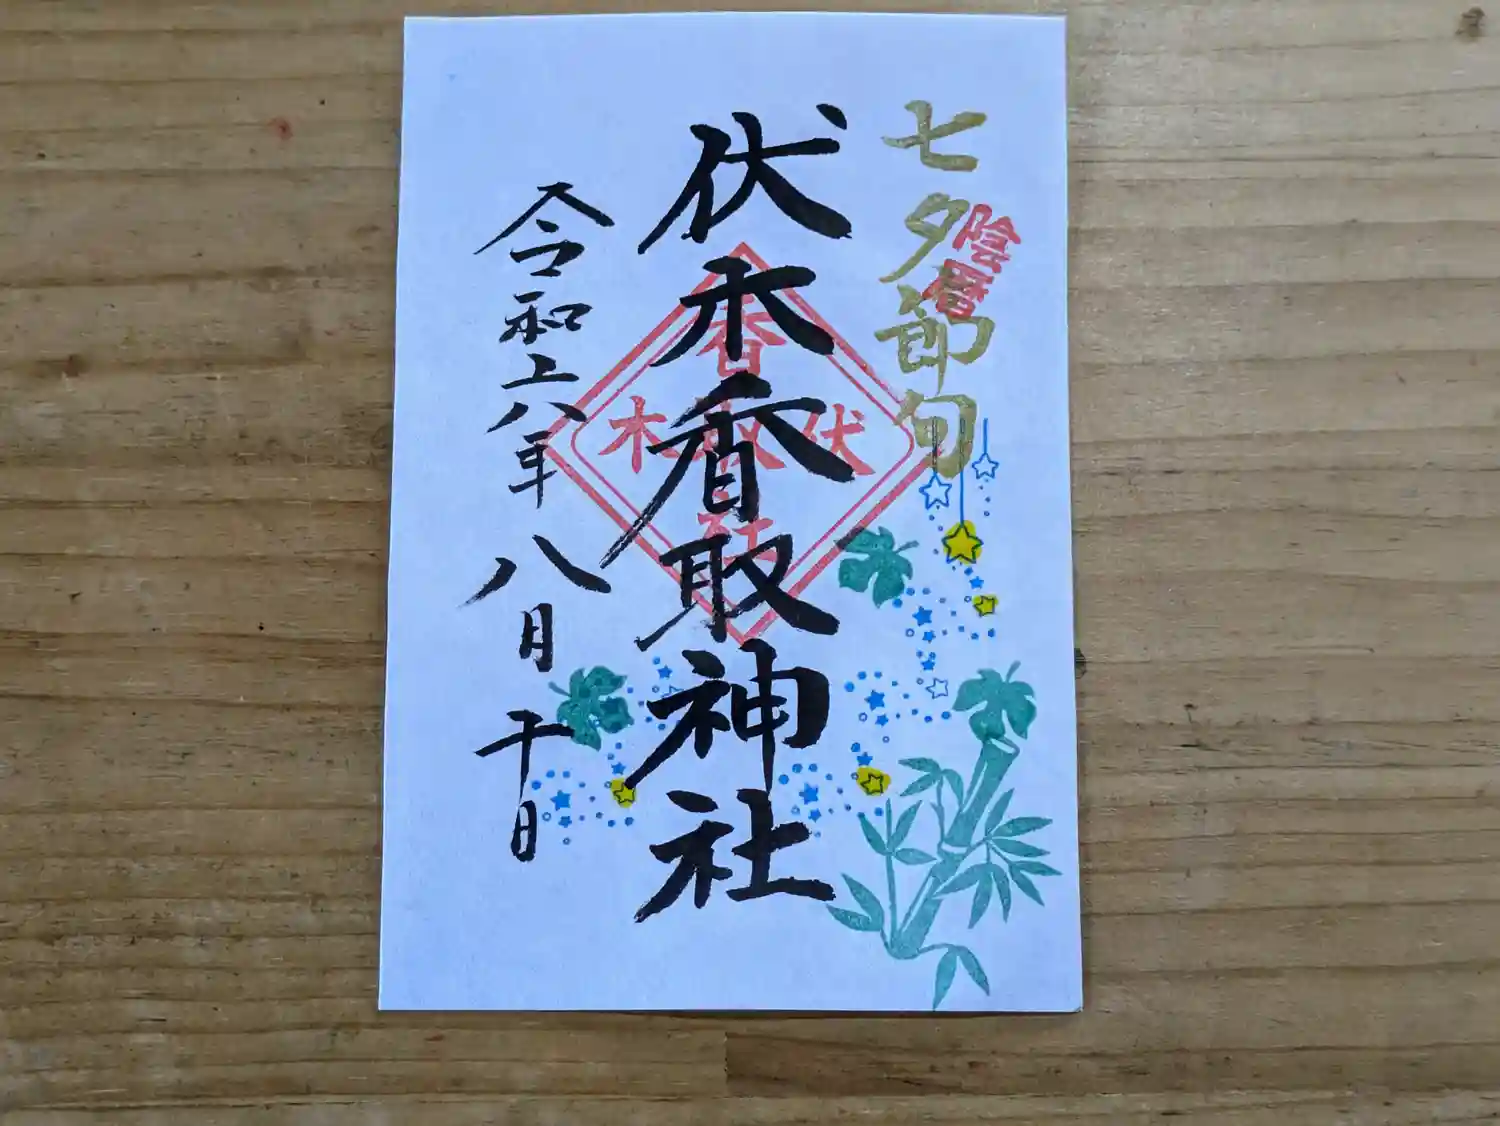 七夕節句
陰暦
伏木香取神社
香
伏取木
社
令和六年八月十日